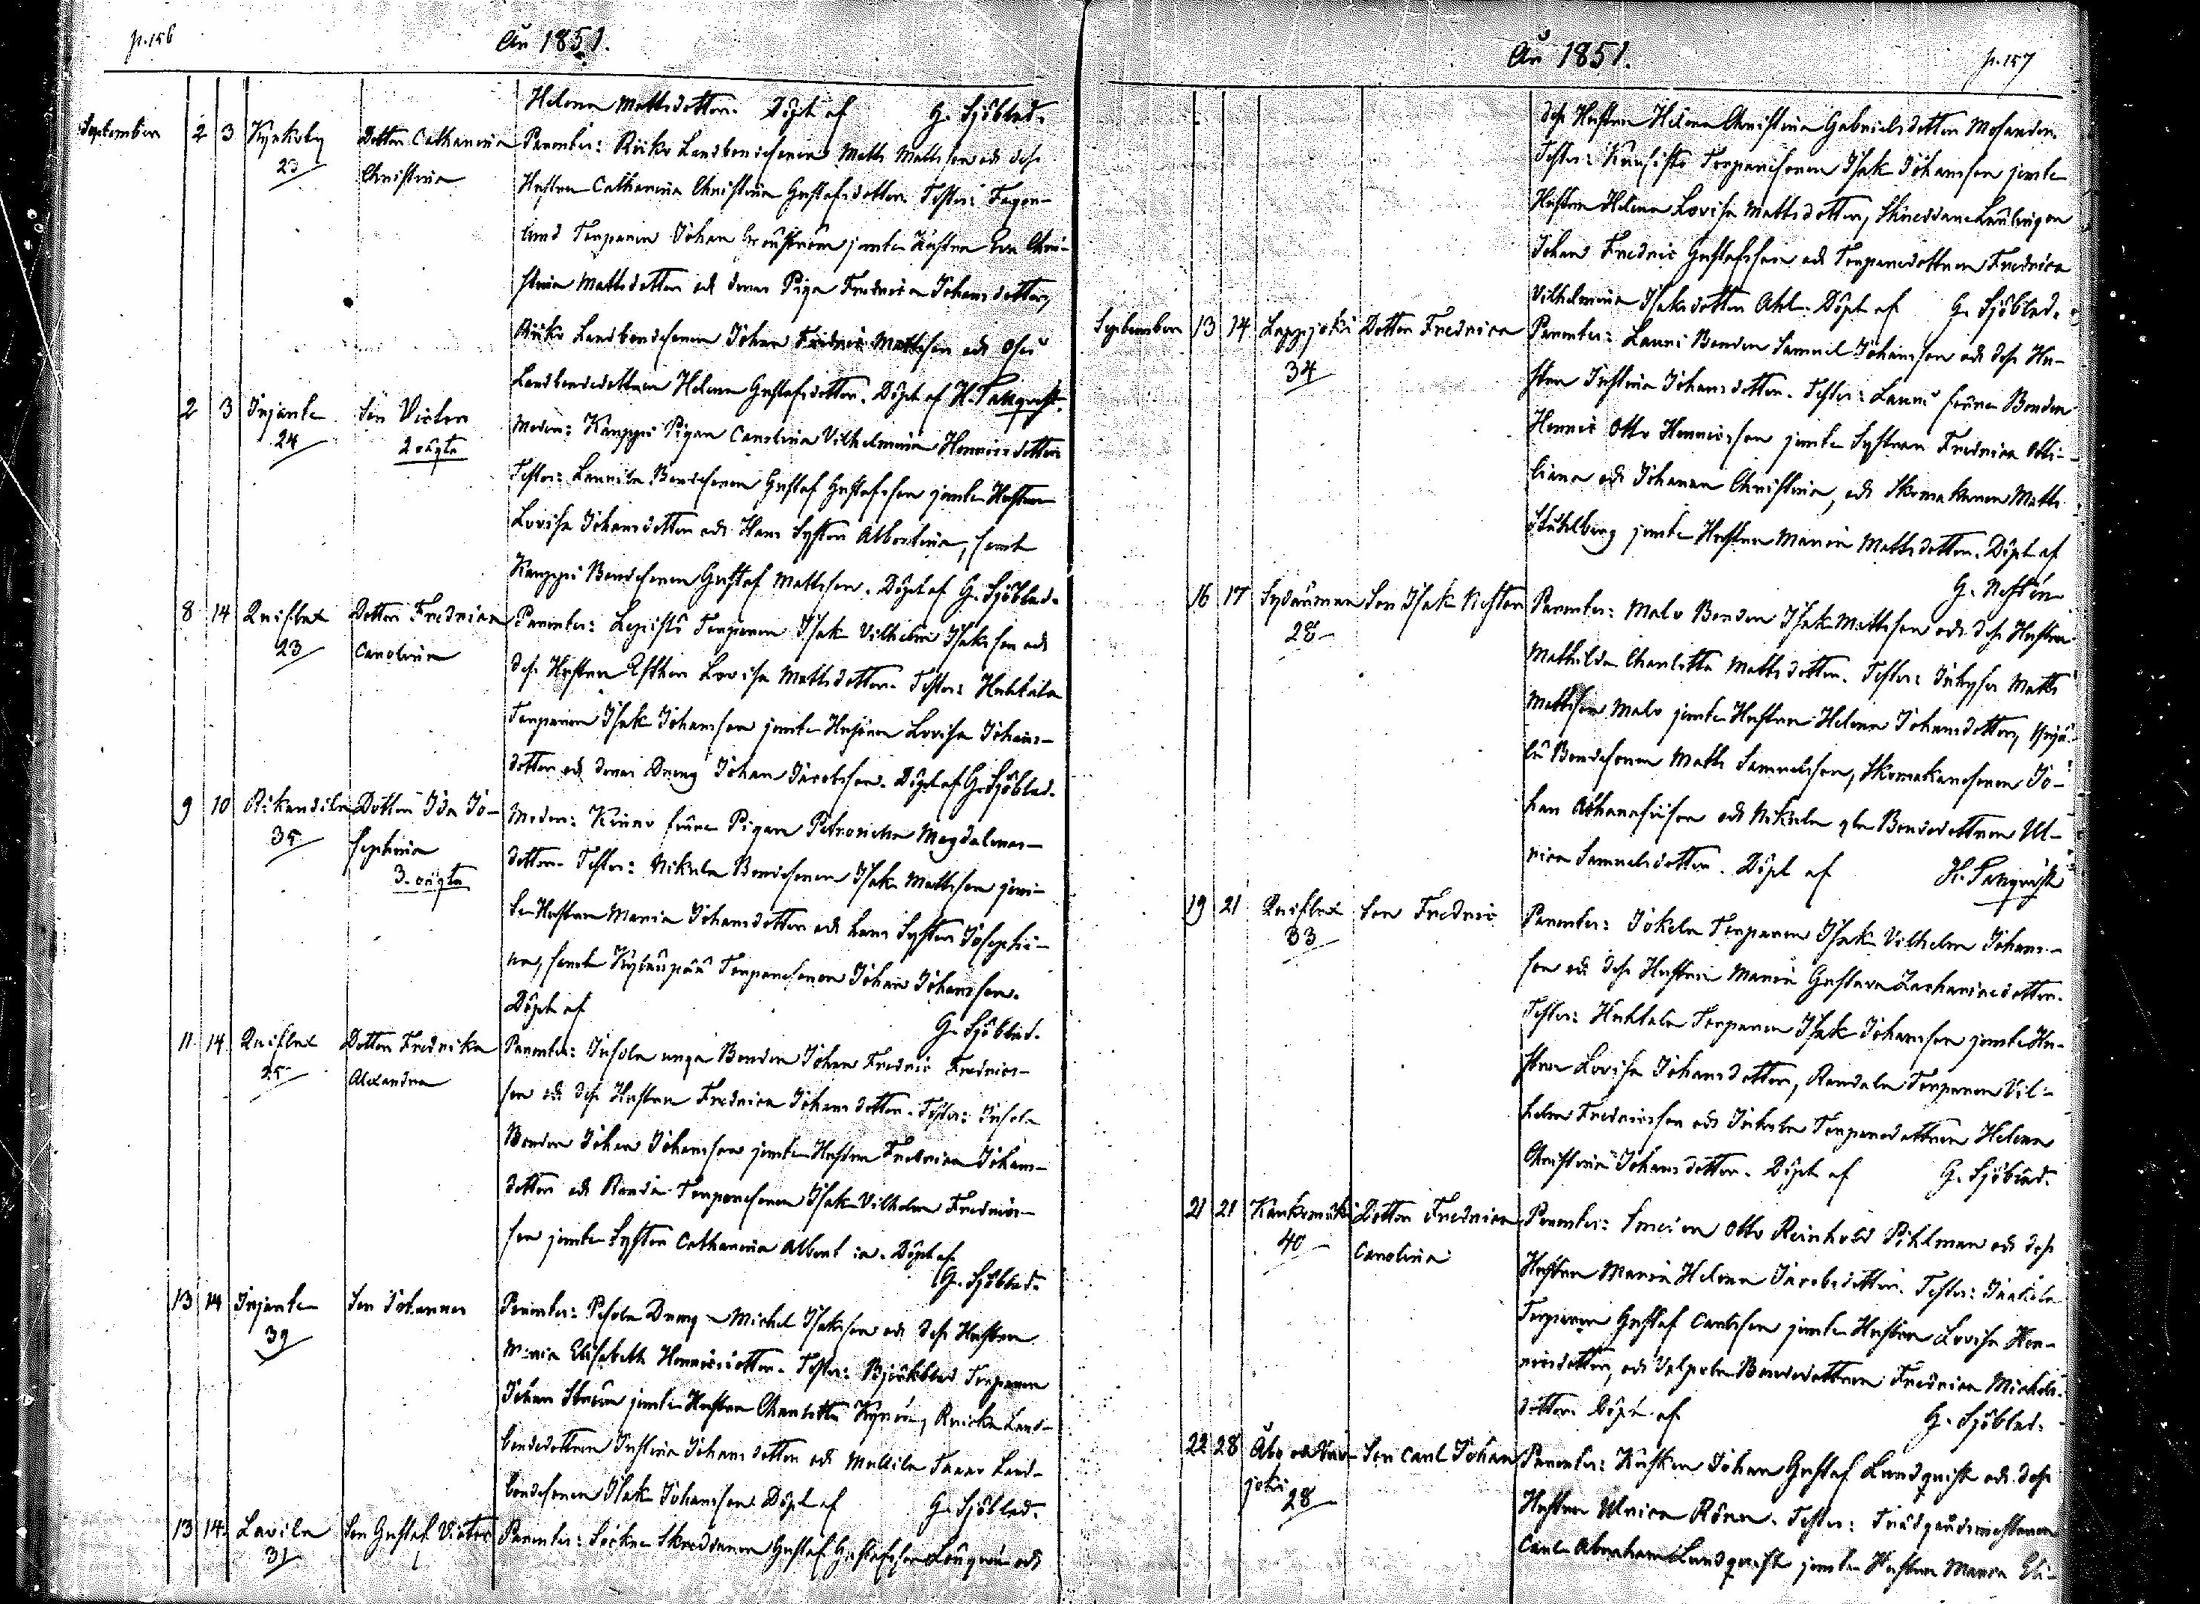 p. 156
År 1851.
Helena Mattsdotter. Döpt af G. Sjöblad.
September 2 3 Kynkoby Dotter Catharina Parenter: Riiko Landbondesonen Matts Mattsson och dess
23 Christina Hustru Catharina Christina Gustafsdotter. Testes:
Torparen Johan jemte Hustru Eva Chri-
stina Mattsdotter och deras Piga Fredrica Johansdotter,
Riiko Landbondesonen Johan Fredric Mattsson och
Landbondedottren Helena Gustafsdotter. Döpt af H. Tanqvist.
2 3 Irjante Son Victor Moder: Kauppi Pigan Carolina Vilhelmina Henricsdotter
24 2 oägta Testes: Laurila Bondesonen Gustaf Gustafsson jemte Hustru
Lovisa Johansdotter och Hans Syster Albertina, samt
Kauppi Bondesonen Gustaf Mattsson. Döpt af G. Sjöblad.
8 14 Dotter Fredrica Parenter: Torparen Isak Vilhelm Isaksson och
23 Carolina dess Hustru Esther Lovisa Mattsdotter. Testes: Huhtala
Torparen Isak Johansson jemte Hustru Lovisa Johans-
dotter och deras Dreng Johan Jacobsson. Döpt af G. Sjöblad.
9 10 Rikandila Dotter Ida Jo- Moder: Pigan Petronella Magdalenas-
35 sephina dotter. Testes: Nikula Bondesonen Isak Mattsson jem-
3. oägta te Hustru Maria Johansdotter och hans Syster Josephi-
na, samt Kyläupää Torparesonen Johan Johansson.
Döpt af G. Sjöblad.
11 14 Dotter Fredrika Parenter: Insola unga Bonden Johan Fredric Fredrics-
25 Alexandra son och dess Hustru Fredrica Johansdotter. Testes: Insola
Bonden Johan Johansson jemte Hustru Fredrica Johans-
dotter och Torparesonen Isak Vilhelm Fredrics-
son jemte Syster Catharina Albertina. Döpt af
G. Sjöblad.
13 14 Irjante Son Johannes Parenter: Pesola Dreng Michel Isaksson och dess Hustru
39 Maria Elisabeth Henricsdotter. Testes: Björkblad Torparen
Johan jemte Hustru Charlotta Land-
bondedottren Justina Johansdotter och Land-
bondesonen Isak Johansson. Döpt af G. Sjöblad.
13 14. Lavila Son Gustaf Victor Parenter: Socknen Skreddaren Gustaf Gustafsson och
31
År 1851.
p. 157
dess Hustru Helena Christina Gabrielsdotter Mosander.
Testes: Torparesonen Isak Johansson jemte
Hustru Helena Lovisa Mattsdotter, Skreddare Lärlingen
Johan Fredric Gustafsson och Torparedottren Fredrica
Vilhelmina Isaksdotter Döpt af G. Sjöblad.
September 13 14 Lappjoki Dotter Fredrica Parenter: Lauri Bonden Samuel Johansson och dess Hu-
34 stru Justina Johansdotter. Testes: Lauri Bonden
Henric Otto Henricsson jemte Systrar Fredrica Otti-
liana och Johanna Christina, och Skomakaren Matts
Ståhlberg jemte Hustru Maria Mattsdotter. Döpt af
G.
16 17 Sydänmaa Son Isak Nestor Parenter: Malo Bonden Isak Mattsson och dess Hustru
28 Mathilda Charlotta Mattsdotter. Testes: Inhyses Matts
Mattsson Malo jemte Hustru Helena Johansdotter,
Bondesonen Matts Samuelsson, Skomakaresonen Jo-
han och Nikula Bondedottren Ul-
rica Samuelsdotter. Döpt af H. Tanqvist
19 21 Son Fredric Parenter: Jokela Torparen Isak Vilhelm Johans-
33 son och dess Hustru Maria Gustava Zachariasdotter.
Testes: Huhtala Torparen Isak Johansson jemte Hu-
stru Lovisa Johansdotter, Torparen Vil-
helm Fredricsson och Torparedottren Helena
Christina Johansdotter. Döpt af G. Sjöblad.
21 21 Kaukomäki Dotter Fredrica Parenter: Smeden Otto Reinhold Pihlman och dess
40 Carolina Hustru Maria Helena Jacobsdotter. Testes:
Torparen Gustaf Carlsson jemte Hustru Lovisa Hen-
ricsdotter, och Bondedottren Fredrica Michels-
dotter. Döpt af G. Sjöblad.
22 28 Åbo Son Carl Johan Parenter: Kusken Johan Gustaf Lundqvist och dess
joki 28 Hustru Ulrica Testes: Trädgårdsmästaren
Carl Abraham Lundqvist jemte Hustru Maria Eli-